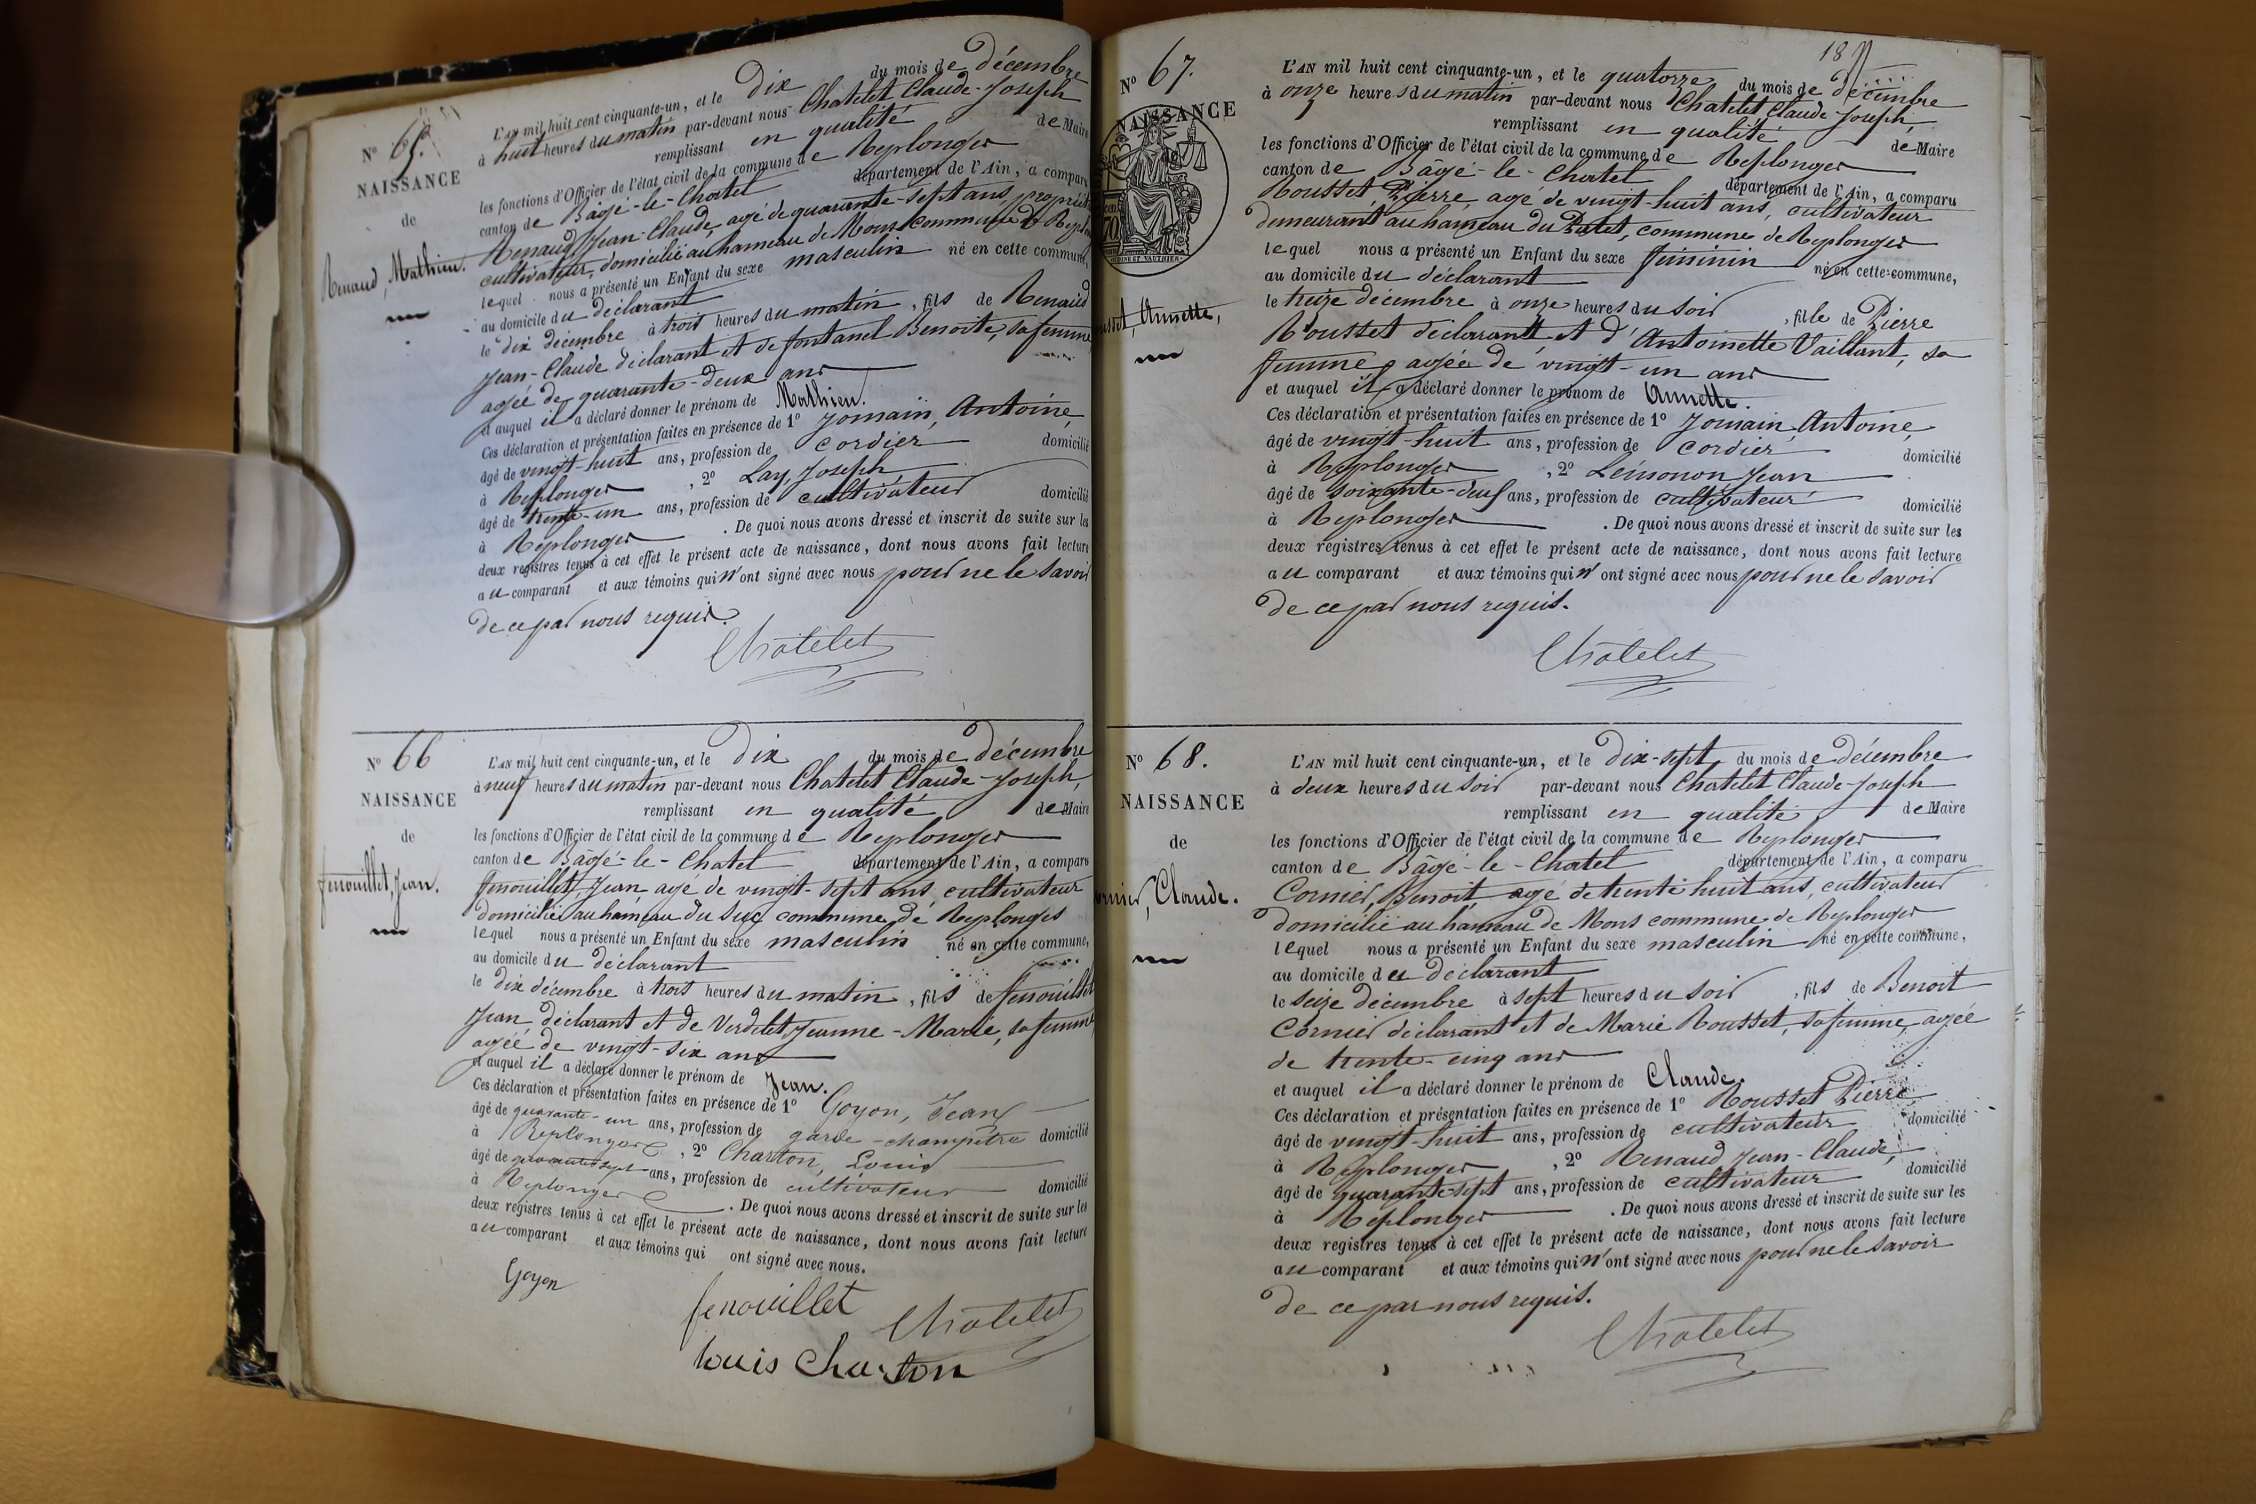 N° 65.
NAISSANCE
de
Renaud, Mathieu.
L'AN mil huit cent cinquante-un, et le Dix du mois de décembre
à huit heures du matin par-devant nous Chatelet Claude-Joseph
remplissant en qualité de Maire
les fonctions d'Officier de l'état civil de la commune de Replonges
canton de Bâgé-le-Chatel département de l'Ain, a comparu
Renaud Jean-Claude, agé de quarante-sept ans, propriét
cultivateur, domicilié au hameau de Mons commune de Replon
lequel nous a présenté un Enfant du sexe masculin né en cette commune,
au domicile du déclarant
le dix décembre à trois heures du matin, fils de Renaud
Jean-Claude déclarant et de fontanel Benoite, sa femme
agée de quarante-deux ans
et auquel il a déclaré donner le prénom de Mathieu.
Ces déclaration et présentation faites en présence de 1° Jomain, Antoine,
âgé de vingt-huit ans, profession de cordier domicilié
à Replonges, 2° Lay, Joseph
âgé de trente-un ans, profession de cultivateur domicilié
à Replonges. De quoi nous avons dressé et inscrit de suite sur les
deux registres tenus à cet effet le présent acte de naissance, dont nous avons fait lecture
au comparant et aux témoins qui n'ont signé avec nous pour ne le savoir
de ce par nous requis.
Chatelet
N° 66
NAISSANCE
de
fenouillet, Jean.
L'AN mil huit cent cinquante-un, et le Dix du mois de décembre
à neuf heures du matin par-devant nous Chatelet Claude-Joseph,
remplissant en qualité de Maire
les fonctions d'Officier de l'état civil de la commune de Replonges
canton de Bâgé-le-Chatel département de l'Ain, a comparu
fenouillet, Jean agé de vingt-sept ans, cultivateur
domicilié au hameau du Suc commune de Replonges
lequel nous a présenté un Enfant du sexe masculin né en cette commune,
au domicile du déclarant
le dix décembre à trois heures du matin, fils de fenouillet
Jean déclarant et de Verdelet Jeanne-Marie, sa femme
agée de vingt-six ans
et auquel il a déclaré donner le prénom de Jean.
Ces déclaration et présentation faites en présence de 1° Goyon, Jean
âgé de quarante-un ans, profession de garde-champêtre domicilié
à Replonges, 2° Charton, Louis
âgé de quarante sept ans, profession de cultivateur domicilié
à Replonges. De quoi nous avons dressé et inscrit de suite sur les
deux registres tenus à cet effet le présent acte de naissance, dont nous avons fait lecture
au comparant et aux témoins qui ont signé avec nous.
Goyon
fenouillet Chatelet
louis Charton
18
N° 67.
NAISSANCE
usset, Annette,
L'AN mil huit cent cinquante-un, et le quatorze du mois de décembre
à onze heures du matin par-devant nous Chatelet Claude Joseph,
remplissant en qualité de Maire
les fonctions d'Officier de l'état civil de la commune de Replonges
canton de Bâgé-le-Chatel département de l'Ain, a comparu
Rousset Pierre, agé de vingt-huit ans, cultivateur
demeurant au hameau du commune de Replonges
lequel nous a présenté un Enfant du sexe féminin né en cette commune,
au domicile du déclarant
le treize décembre à onze heures du soir, fille de Pierre
Rousset déclarant et d'Antoinette Vaillant, sa
femme, agée de vingt-un ans
et auquel il a déclaré donner le prénom de Annette.
Ces déclaration et présentation faites en présence de 1° Jomain, Antoine,
âgé de vingt-huit ans, profession de cordier domicilié
à Replonges, 2° Lémonon Jean
âgé de soixante-deux ans, profession de cultivateur domicilié
à Replonges. De quoi nous avons dressé et inscrit de suite sur les
deux registres tenus à cet effet le présent acte de naissance, dont nous avons fait lecture
au comparant et aux témoins qui n'ont signé avec nous pour ne le savoir
de ce par nous requis.
Chatelet
N° 68.
NAISSANCE
de
ornier, Claude.
L'AN mil huit cent cinquante-un, et le Dix-sept du mois de décembre
à deux heures du soir par-devant nous Chatelet Claude-Joseph
remplissant en qualité de Maire
les fonctions d'Officier de l'état civil de la commune de Replonges
canton de Bâgé-le-Chatel département de l'Ain, a comparu
Cornier, Benoit, agé de trente huit ans, cultivateur
domicilié au hameau de Mons commune de Replonges
lequel nous a présenté un Enfant du sexe masculin né en cette commune,
au domicile du déclarant
le seize décembre à sept heures du soir, fils de Benoit
Cornier déclarant et de Marie Rousset, sa femme, agée
de trente-cinq ans
et auquel il a déclaré donner le prénom de Claude.
Ces déclaration et présentation faites en présence de 1° Rousset Pierre
âgé de vingt-huit ans, profession de cultivateur domicilié
à Replonges, 2° Renaud Jean-Claude,
âgé de quarante-sept ans, profession de cultivateur domicilié
à Replonges. De quoi nous avons dressé et inscrit de suite sur les
deux registres tenus à cet effet le présent acte de naissance, dont nous avons fait lecture
au comparant et aux témoins qui n'ont signé avec nous pour ne le savoir
de ce par nous requis.
Chatelet